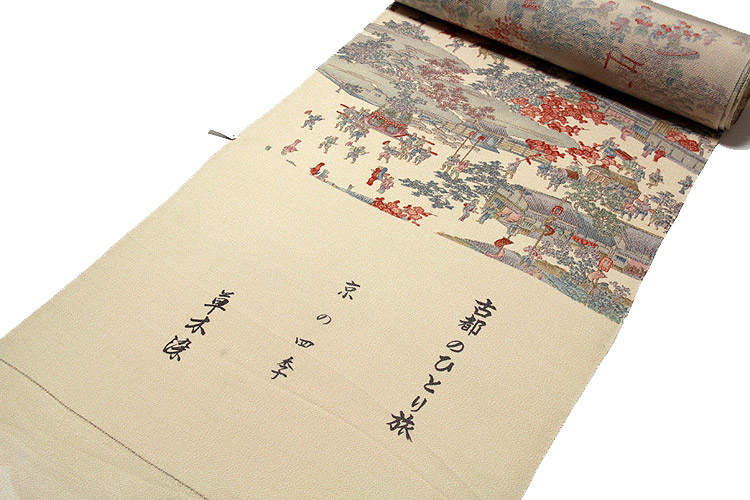 古都のひとり旅
京の四季
草木染